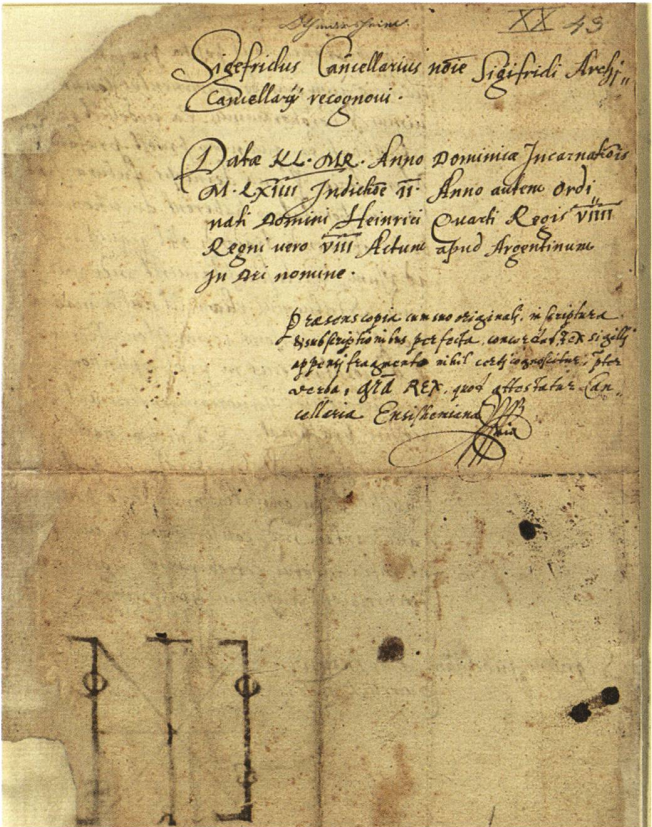 Othmarsheim.
XX 43
Sigefridus Cancellarius noie Sigifridi Archi„
Cancellarij recognovi.
Datae KL. MR. Anno Dominicae Incarnatiois
M. LXIIII Indictioe II. Anno autem Ordi
nati Domini Heinrici Quarti Regis VIIII
Regni vero VIII Actum apud Argentinum
In Dei nomine.
Praesens copia cum suo originali, in scriptura
& subscriptionibus perfecta, concordat, ex sigilli
appensi fragmento nihil certi cognoscitur, pter
verba, GRA REX, quod attestatur Can„
cellaria Ensishemiana